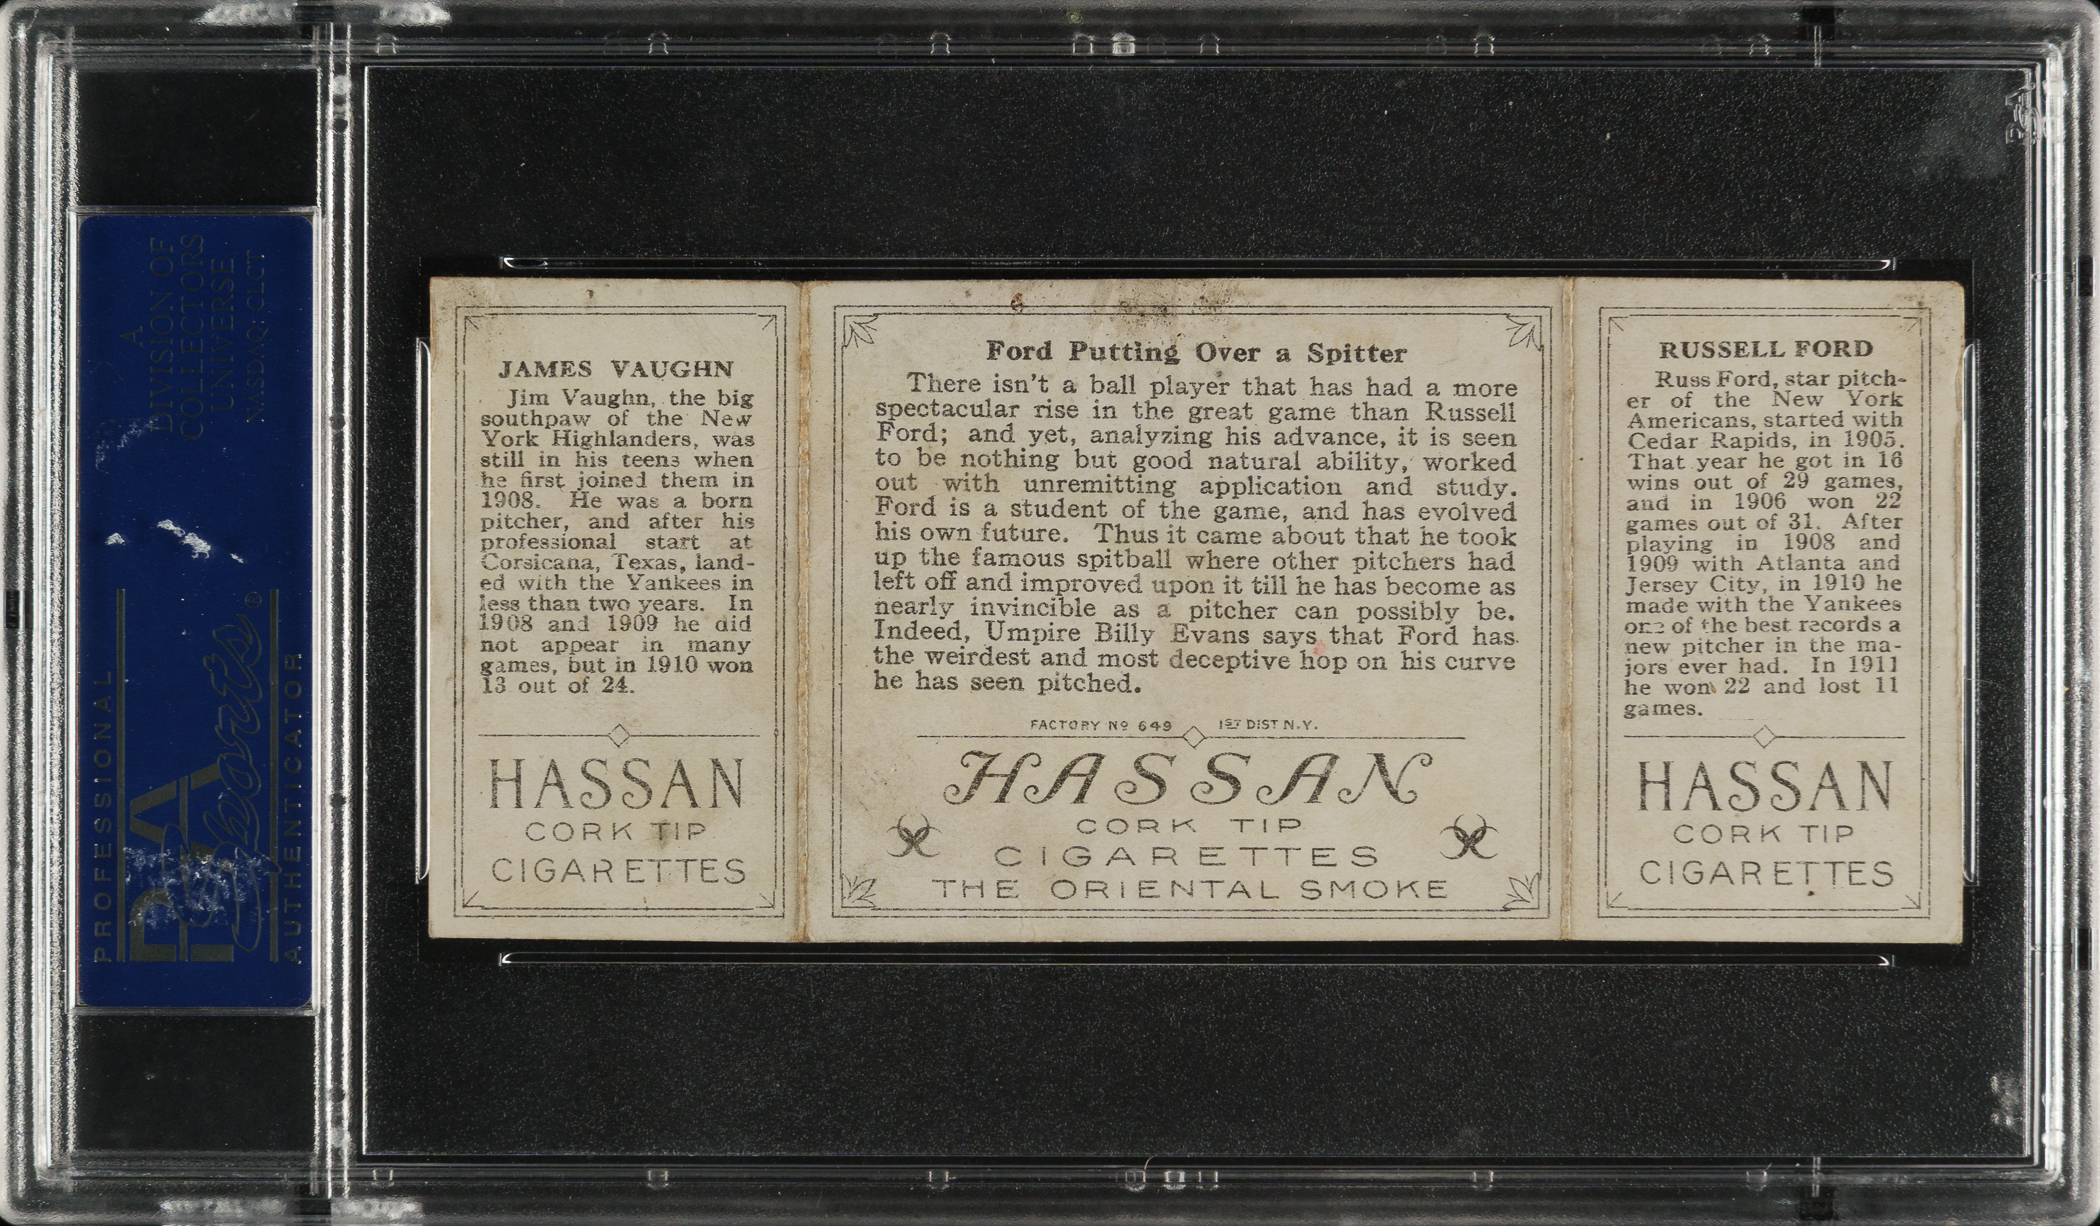 A
DIVISION OF
COLLECTORS
UNIVERSE
NASDAQ: CLCT
PROFESSIONAL
PSA
Sports®
AUTHENTICATOR
JAMES VAUGHN
Jim Vaughn, the big
southpaw of the New
York Highlanders, was
still in his teens when
he first joined them in
1908. He was a born
pitcher, and after his
professional start at
Corsicana, Texas, land-
ed with the Yankees in
less than two years. In
1908 and 1909 he did
not appear in many
games, but in 1910 won
13 out of 24.
HASSAN
CORK TIP
CIGARETTES
Ford Putting Over a Spitter
There isn't a ball player that has had a more
spectacular rise in the great game than Russell
Ford; and yet, analyzing his advance, it is seen
to be nothing but good natural ability, worked
out with unremitting application and study.
Ford is a student of the game, and has evolved
his own future. Thus it came about that he took
up the famous spitball where other pitchers had
left off and improved upon it till he has become as
nearly invincible as a pitcher can possibly be.
Indeed, Umpire Billy Evans says that Ford has
the weirdest and most deceptive hop on his curve
he has seen pitched.
FACTORY Nº 649 1ST DIST N.Y.
HASSAN
CORK TIP
CIGARETTES
THE ORIENTAL SMOKE
RUSSELL FORD
Russ Ford, star pitch-
er of the New York
Americans, started with
Cedar Rapids, in 1905.
That year he got in 16
wins out of 29 games,
and in 1906 won 22
games out of 31. After
playing in 1908 and
1909 with Atlanta and
Jersey City, in 1910 he
made with the Yankees
one of the best records a
new pitcher in the ma-
jors ever had. In 1911
he won 22 and lost 11
games.
HASSAN
CORK TIP
CIGARETTES